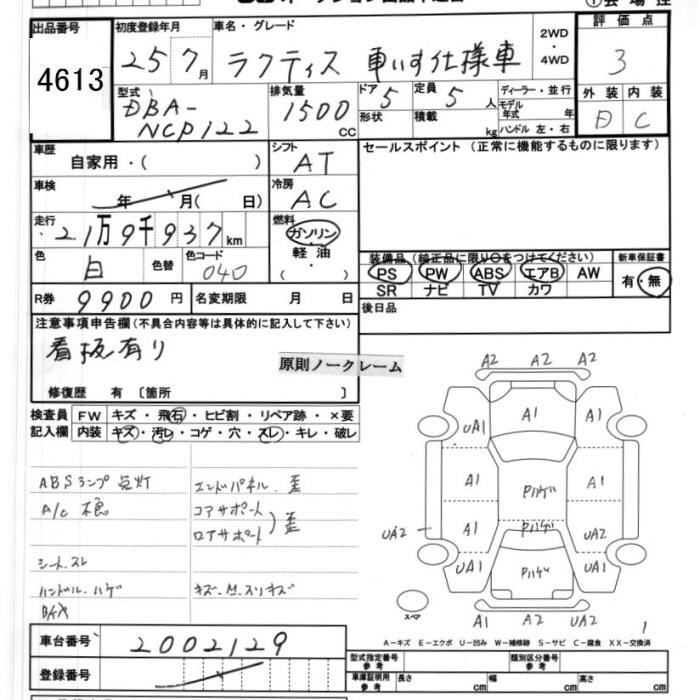 出品番号
4613
初度登録年月
25 7月
車名・グレード
ラクティス 車いす仕様車
2WD
・
4WD
評価点
3
型式
DBA-
NCP122
排気量
1500
CC
ドア
5
定員
5 人
形状
積載
kg
ディーラー・並行
モデル
年式 年
ハンドル 左・右
外装
内装
C
車歴
自家用・( )
シフト
AT
セールスポイント(正常に機能するものに限ります)
車検
年 月( 日)
冷房
AC
走行
2.1万9千937km
燃料
ガソリン
・
軽油
・
( )
色
白
色替
色コード
040
装備品(純正品に限り○をつけてください)
PS PW ABS エアB AW
SR ナビ TV カワ
新車保証書
有・無
R券
9900円
名変期限
月 日
後日品
注意事項申告欄(不具合内容等は具体的に記入して下さい)
看板有り
原則ノークレーム
修復歴 有 〔箇所 〕
検査員
記入欄
FW キズ・飛石・ヒビ割・リペア跡・×要
内装 キズ・汚レ・コゲ・穴・スレ・キレ・破レ
ABSランプ点灯
A/C不良
シートスレ
ハンドル・ハゲ
エンドパネル歪
コアサポート
ロアサポート)歪
A2 A2 A2
UA1 A1 A1
A1 Pハゲ A1
A1 Pハゲ UA2
UA2
UA1 Pハゲ UA1
A1 A2 UA2
スペア
1
A-キズ E-エクボ U-凹み W-補修跡 S-サビ C-腐食 XX-交換済
車台番号
2002129
登録番号
型式指定番号
参考
類別区分番号
参考
車庫証明用
参考
長さ cm 幅 cm 高さ cm